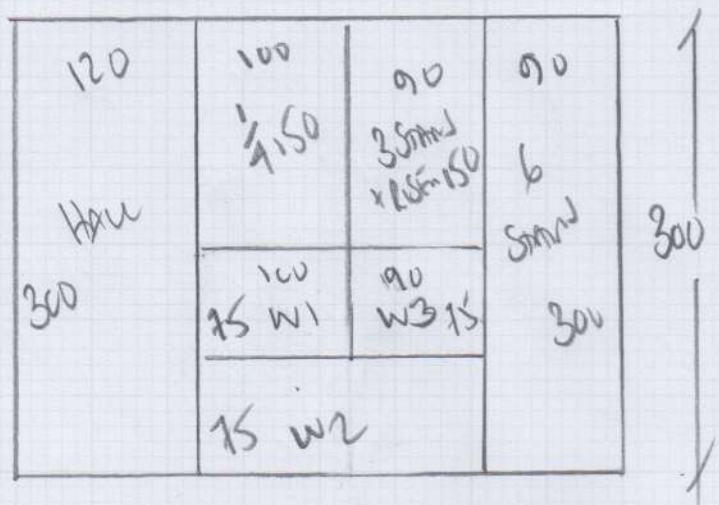 120
HALL
300
100
1/4 150
90
3 STAND
+ RISER 150
90
6
STAND
300
300
100
75 W1
90
W3 75
75 W2